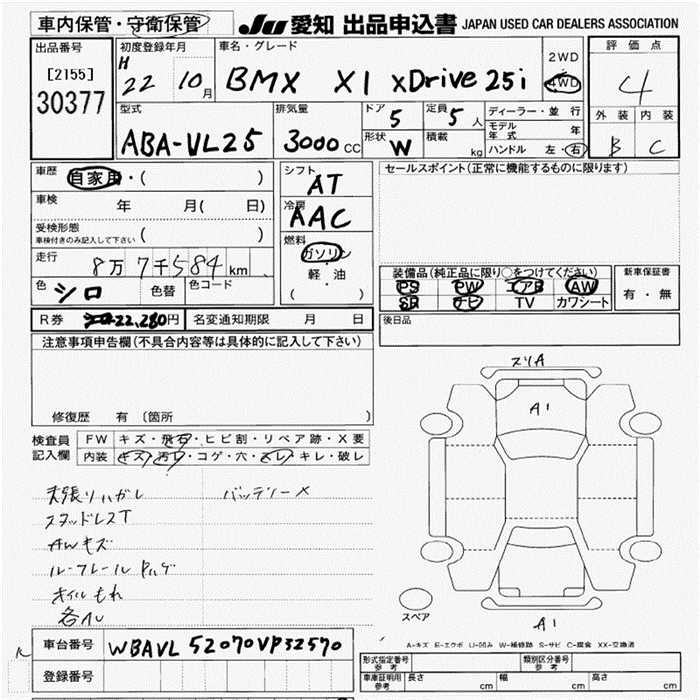 車内保管・守衛保管
JU 愛知 出品申込書 JAPAN USED CAR DEALERS ASSOCIATION
出品番号
[2155]
30377
初度登録年月
H
22 10月
車名・グレード
BMX X1 xDrive25i
2WD
4WD
評価点
4
外装 内装
B C
型式
ABA-VL25
排気量
3000 CC
ドア
5
定員
5人
形状
W
積載
kg
ディーラー・並行
モデル年式 年
ハンドル 左・右
車歴
自家用・( )
車検
年 月( 日)
受検形態
車検付きのみ記入して下さい ( )
走行
8万7千584km
色
シロ
色替
色コード
シフト
AT
冷房
AAC
燃料
ガソリン
軽・油
( )
セールスポイント(正常に機能するものに限ります)
装備品(純正品に限り○をつけてください)
PS PW エアB AW
SR ナビ TV カワシート
新車保証書
有・無
R券 22,280円
名変通知期限 月 日
後日品
注意事項申告欄(不具合内容等は具体的に記入して下さい)
修復歴 有〔箇所
検査員
記入欄
FW キズ・飛石・ヒビ割・リペア跡・X要
内装 キズ・汚レ・コゲ・穴・スレ・キレ・破レ
天張リハガレ バッテリーX
スタッドレスT
AWキズ
オイルもれ
各AU
スリA
A1
A1
スペア
A-キズ E-エクボ U-凹み W-補修跡 S-サビ C-腐食 XX-交換済
車台番号
WBAVL52070VP32570
登録番号
形式指定番号
参考
類別区分番号
参考
車庫証明用
参考
長さ cm 幅 cm 高さ cm